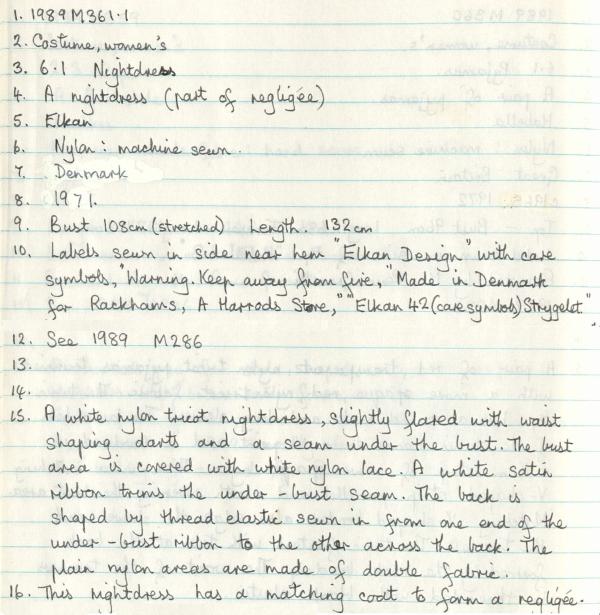 1. 1989 M361.1
2. Costume, women's
3. 6.1 Nightdress
4. A nightdress (part of negligée)
5. Elkan
6. Nylon: machine sewn.
7. Denmark
8. 1971.
9. Bust 108cm (stretched) Length. 132cm
10. Labels sewn in side near hem "Elkan Design" with care
symbols, "Warning. Keep away from fire, "Made in Denmark
for Rackhams, A Harrods Store," "Elkan 42 (care symbols) Strygelet."
12. See 1989 M286
13.
14.
15. A white nylon tricot nightdress, slightly flared with waist
shaping darts and a seam under the bust. The bust
area is covered with white nylon lace. A white satin
ribbon trims the under-bust seam. The back is
shaped by thread elastic sewn in from one end of the
under-bust ribbon to the other across the back. The
plain nylon areas are made of double fabric.
16. This nightdress has a matching coat to form a negligée.